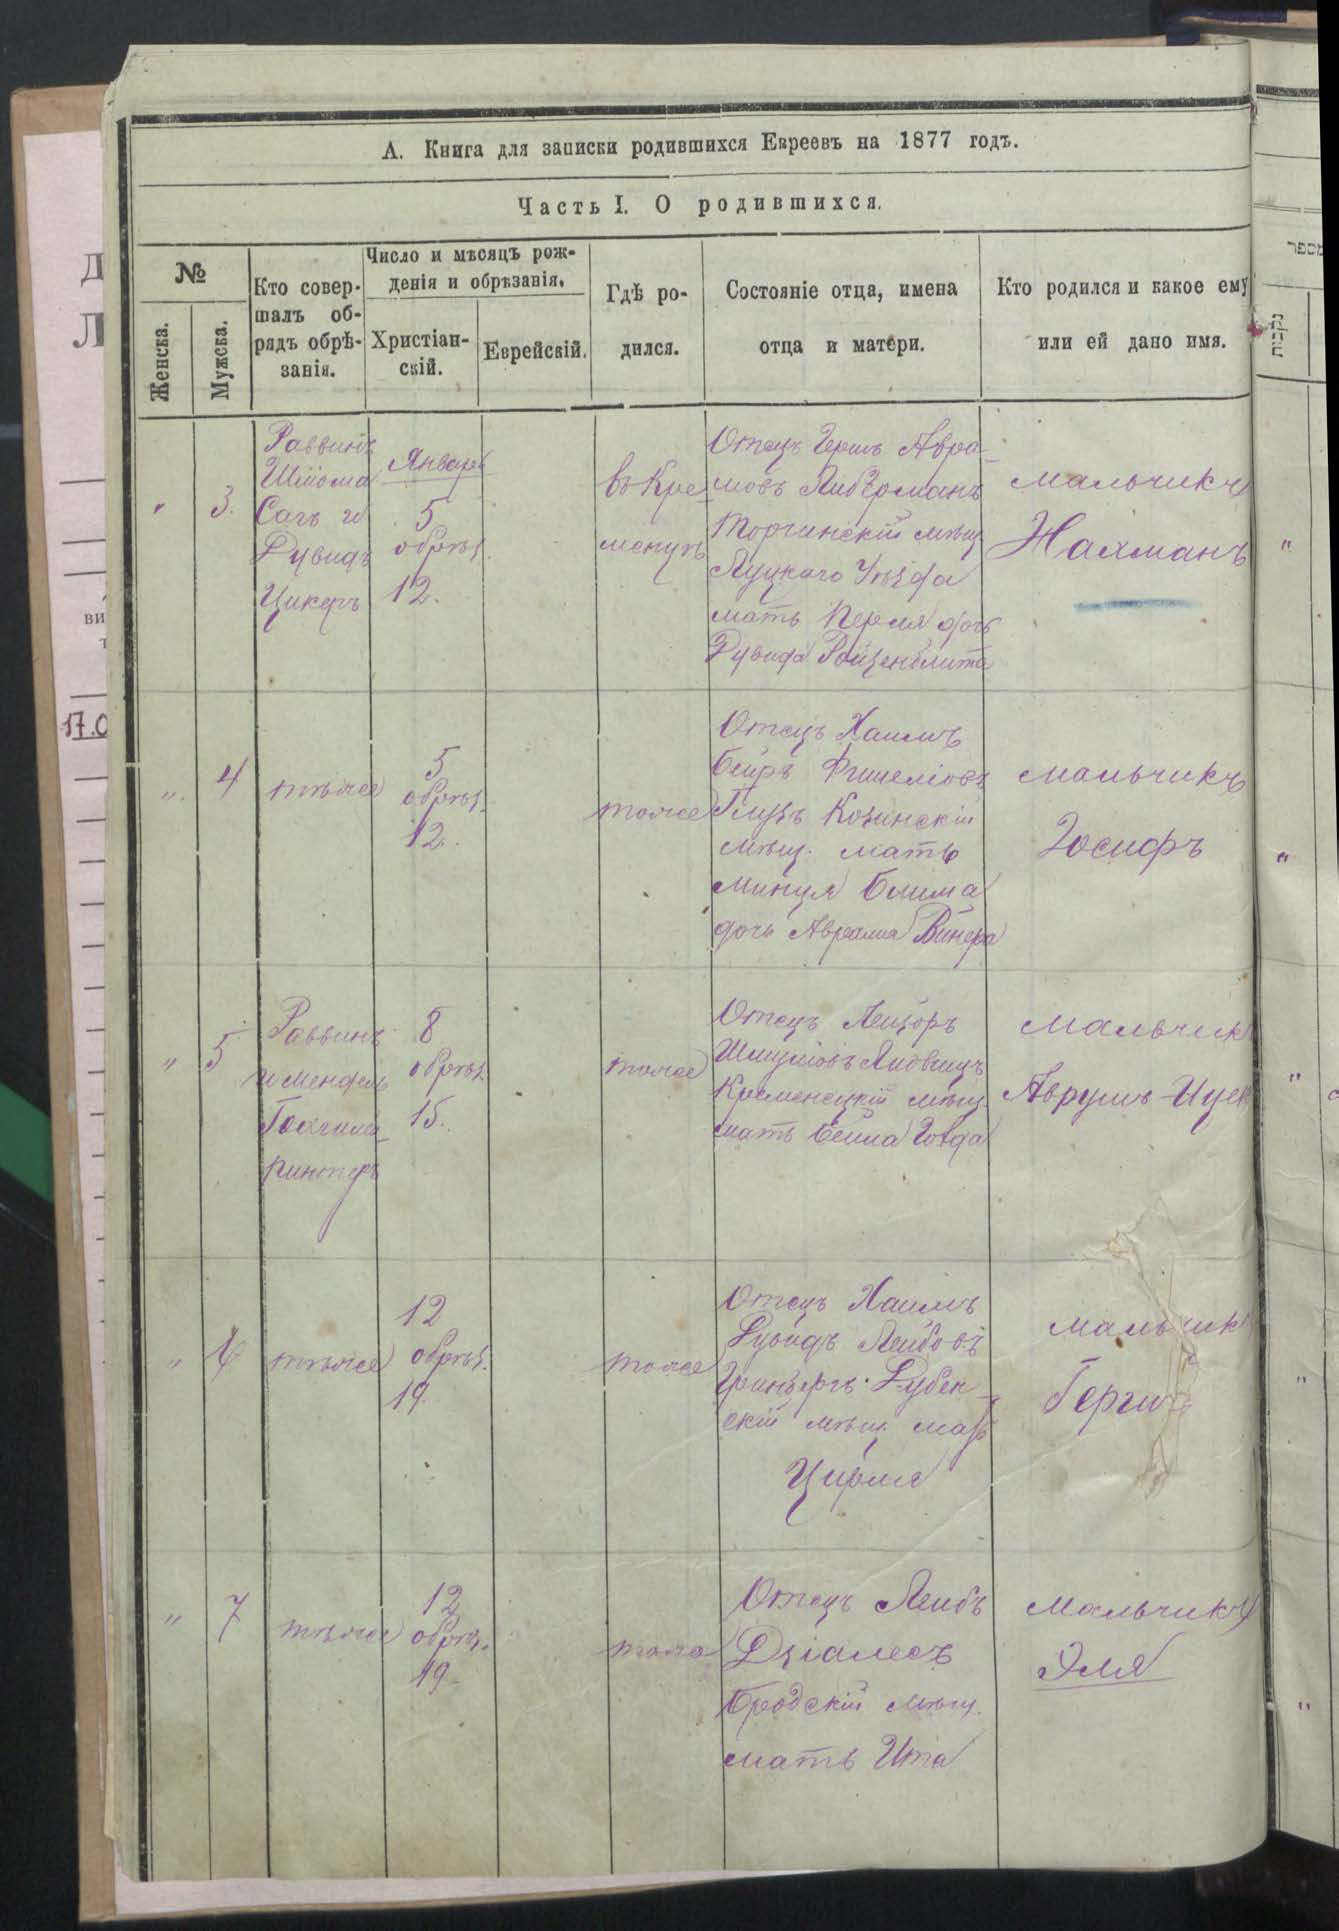 А. Книга для записки родившихся Евреевъ на 1877 годъ.
Часть I. О родившихся.
№
Женска.
Мужска.
Кто совер-
шалъ об-
рядъ обрѣ-
занія.
Число и мѣсяцъ рож-
денія и обрѣзанія.
Христіан-
скій.
Еврейскій.
Гдѣ ро-
дился.
Состояніе отца, имена
отца и матери.
Кто родился и какое ему
или ей дано имя.
"
3.
Раввинъ
Шлиома
и
Дувидъ
Цикеръ
Января
5
обрѣз.
12.
въ Кре-
менцѣ
Отецъ Гершъ Авра-
мовъ Либерманъ
Торчинскій мѣщ
Луцкаго Уѣзда
мать Перля дочь
Дувида
мальчикъ
Нахманъ
"
4
тѣже
5
обрѣз.
12.
тоже
Отецъ Хаимъ
Беиръ Фишеліовъ
Глузъ Козинскій
мѣщ. мать
Минця Блима
дочь Авраама Винера
мальчикъ
Іосифъ
"
5
Раввинъ
и Мендель
8
обрѣз.
15.
тоже
Отецъ Лейзоръ
Шмуліовъ
Кременецкій мѣщ.
мать Бейла Голда
мальчик
Аврумъ-Ицек
"
6
тѣже
12
обрѣз.
19.
тоже
Отецъ Хаимъ
Дувидъ Лейбовъ
Гринбергъ Дубен-
скій мѣщ. мать
Цирля
мальчик
Герш
"
7
тѣже
12
обрѣз.
19.
тоже
Отецъ Лейбъ
Дзіалесъ
Бродскій мѣщ.
мать Ита
мальчикъ
Эля
17.0
מספר
נקבות